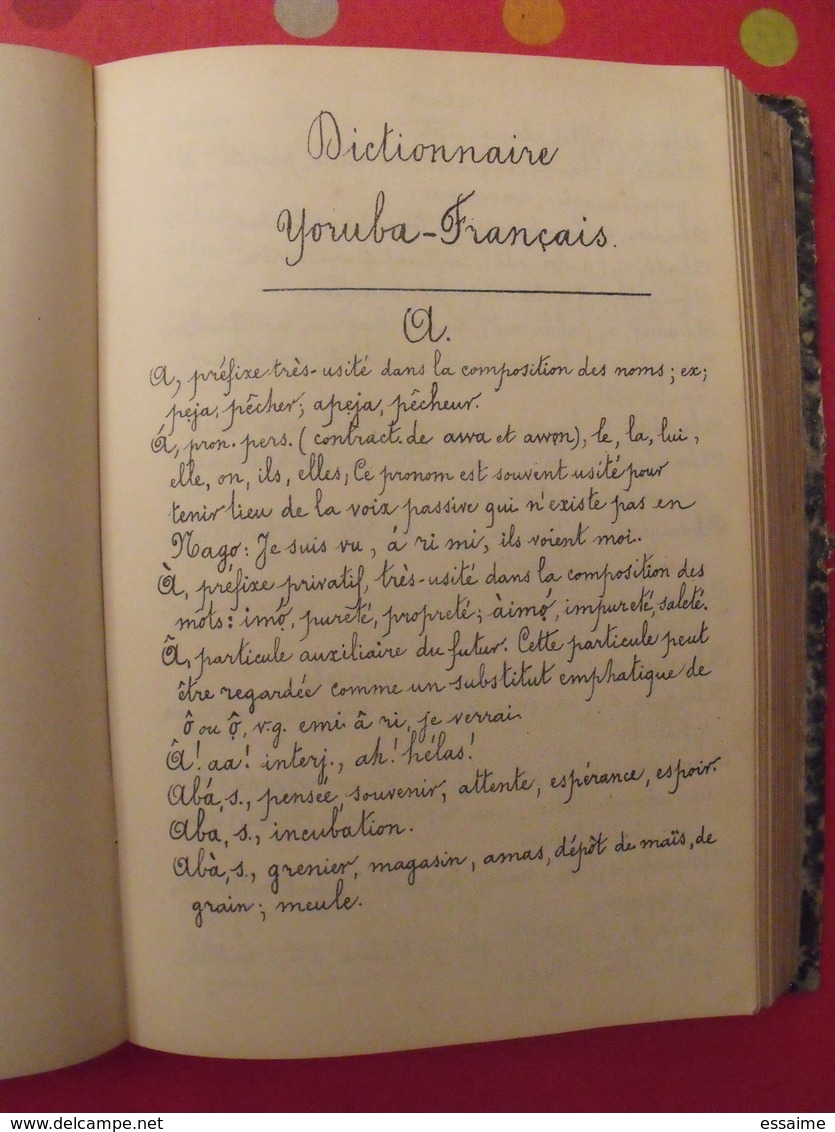 Dictionnaire
Yoruba-Français.
A.
A, préfixe très-usité dans la composition des noms; ex;
peja, pêcher; apeja, pêcheur.
Á, pron. pers. (contract. de awa et awọn), le, la, lui,
elle, on, ils, elles; Ce pronom est souvent usité pour
tenir lieu de la voix passive qui n'existe pas en
Nago: Je suis vu, á ri mi, ils voient moi.
À, préfixe privatif, très-usité dans la composition des
mots: imọ́, pureté, propreté; àimọ́, impureté, saleté.
Â, particule auxiliaire du futur. Cette particule peut
être regardée comme un substitut emphatique de
ô ou ộ, v.g. emi â ri, je verrai.
Â! aa! interj., ah! hélas!
Abá, s., pensée, souvenir, attente, espérance, espoir.
Aba, s., incubation.
Abà, s., grenier, magasin, amas, dépôt de maïs, de
grain; meule.
delcampe.net
essaime